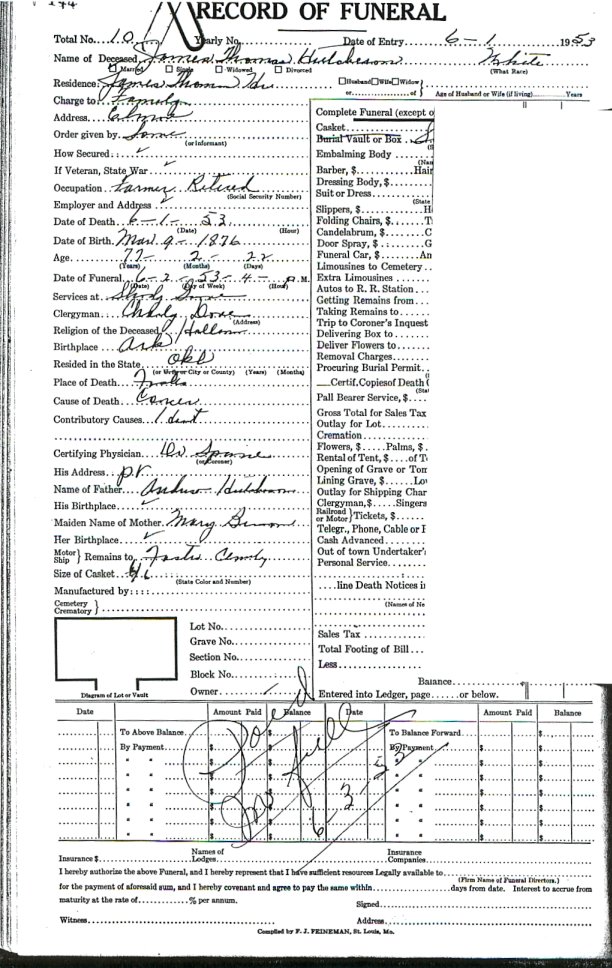 RECORD OF FUNERAL
Total No. 10 Yearly No. Date of Entry 6-1 1953
Name of Deceased James Thomas Hutcheson White
Married Single Widowed Divorced (What Race)
Residence James Thomas Husband Wife Widow
or of Age of Husband or Wife (if living) Years
Charge to Family
Address
Order given by Same
(or Informant)
How Secured
If Veteran, State War
Occupation Farmer Retired
(Social Security Number)
Employer and Address
Date of Death 6-1-53
(Date) (Hour)
Date of Birth Mar 9-1876
Age 77-2-22
(Years) (Months) (Days)
Date of Funeral 6-2-53-4-P.M.
(Date) (Day of Week) (Hour)
Services at
Clergyman
(Address)
Religion of the Deceased
Birthplace Ark
Resided in the State Okl
(or City or County) (Years) (Months)
Place of Death
Cause of Death
Contributory Causes
Certifying Physician Dr
(or Coroner)
His Address
Name of Father Andrew Hutcheson
His Birthplace
Maiden Name of Mother Mary
Her Birthplace
Motor
Ship } Remains to Foster
Size of Casket
(State Color and Number)
Manufactured by
Cemetery
Crematory }
Lot No.
Grave No.
Section No.
Block No.
Owner
Diagram of Lot or Vault
Complete Funeral (except o
Casket
Burial Vault or Box
Embalming Body
(Nam
Barber, $ Hair
Dressing Body, $
Suit or Dress
(State
Slippers, $ H
Folding Chairs, $ T
Candelabrum, $ C
Door Spray, $ G
Funeral Car, $ An
Limousines to Cemetery
Extra Limousines
Autos to R. R. Station
Getting Remains from
Taking Remains to
Trip to Coroner's Inquest
Delivering Box to
Deliver Flowers to
Removal Charges
Procuring Burial Permit
Certif. Copies of Death (
(Stat
Pall Bearer Service, $
Gross Total for Sales Tax
Outlay for Lot
Cremation
Flowers, $ Palms, $
Rental of Tent, $ of T
Opening of Grave or Tom
Lining Grave, $ Lo
Outlay for Shipping Char
Clergyman, $ Singers
Railroad
or Motor } Tickets, $
Telegr., Phone, Cable or F
Cash Advanced
Out of town Undertaker'
Personal Service
line Death Notices i
(Names of Ne
Sales Tax
Total Footing of Bill
Less
Balance
Entered into Ledger, page or below.
Date Amount Paid Balance Date Amount Paid Balance
To Above Balance To Balance Forward
By Payment By Payment
Paid
In full
6-2-53
Insurance $ Names of Lodges Insurance Companies
I hereby authorize the above Funeral, and I hereby represent that I have sufficient resources Legally available to
(Firm Name of Funeral Directors.)
for the payment of aforesaid sum, and I hereby covenant and agree to pay the same within days from date. Interest to accrue from
maturity at the rate of % per annum. Signed
Witness Address
Compiled by F. J. FEINEMAN, St. Louis, Mo.